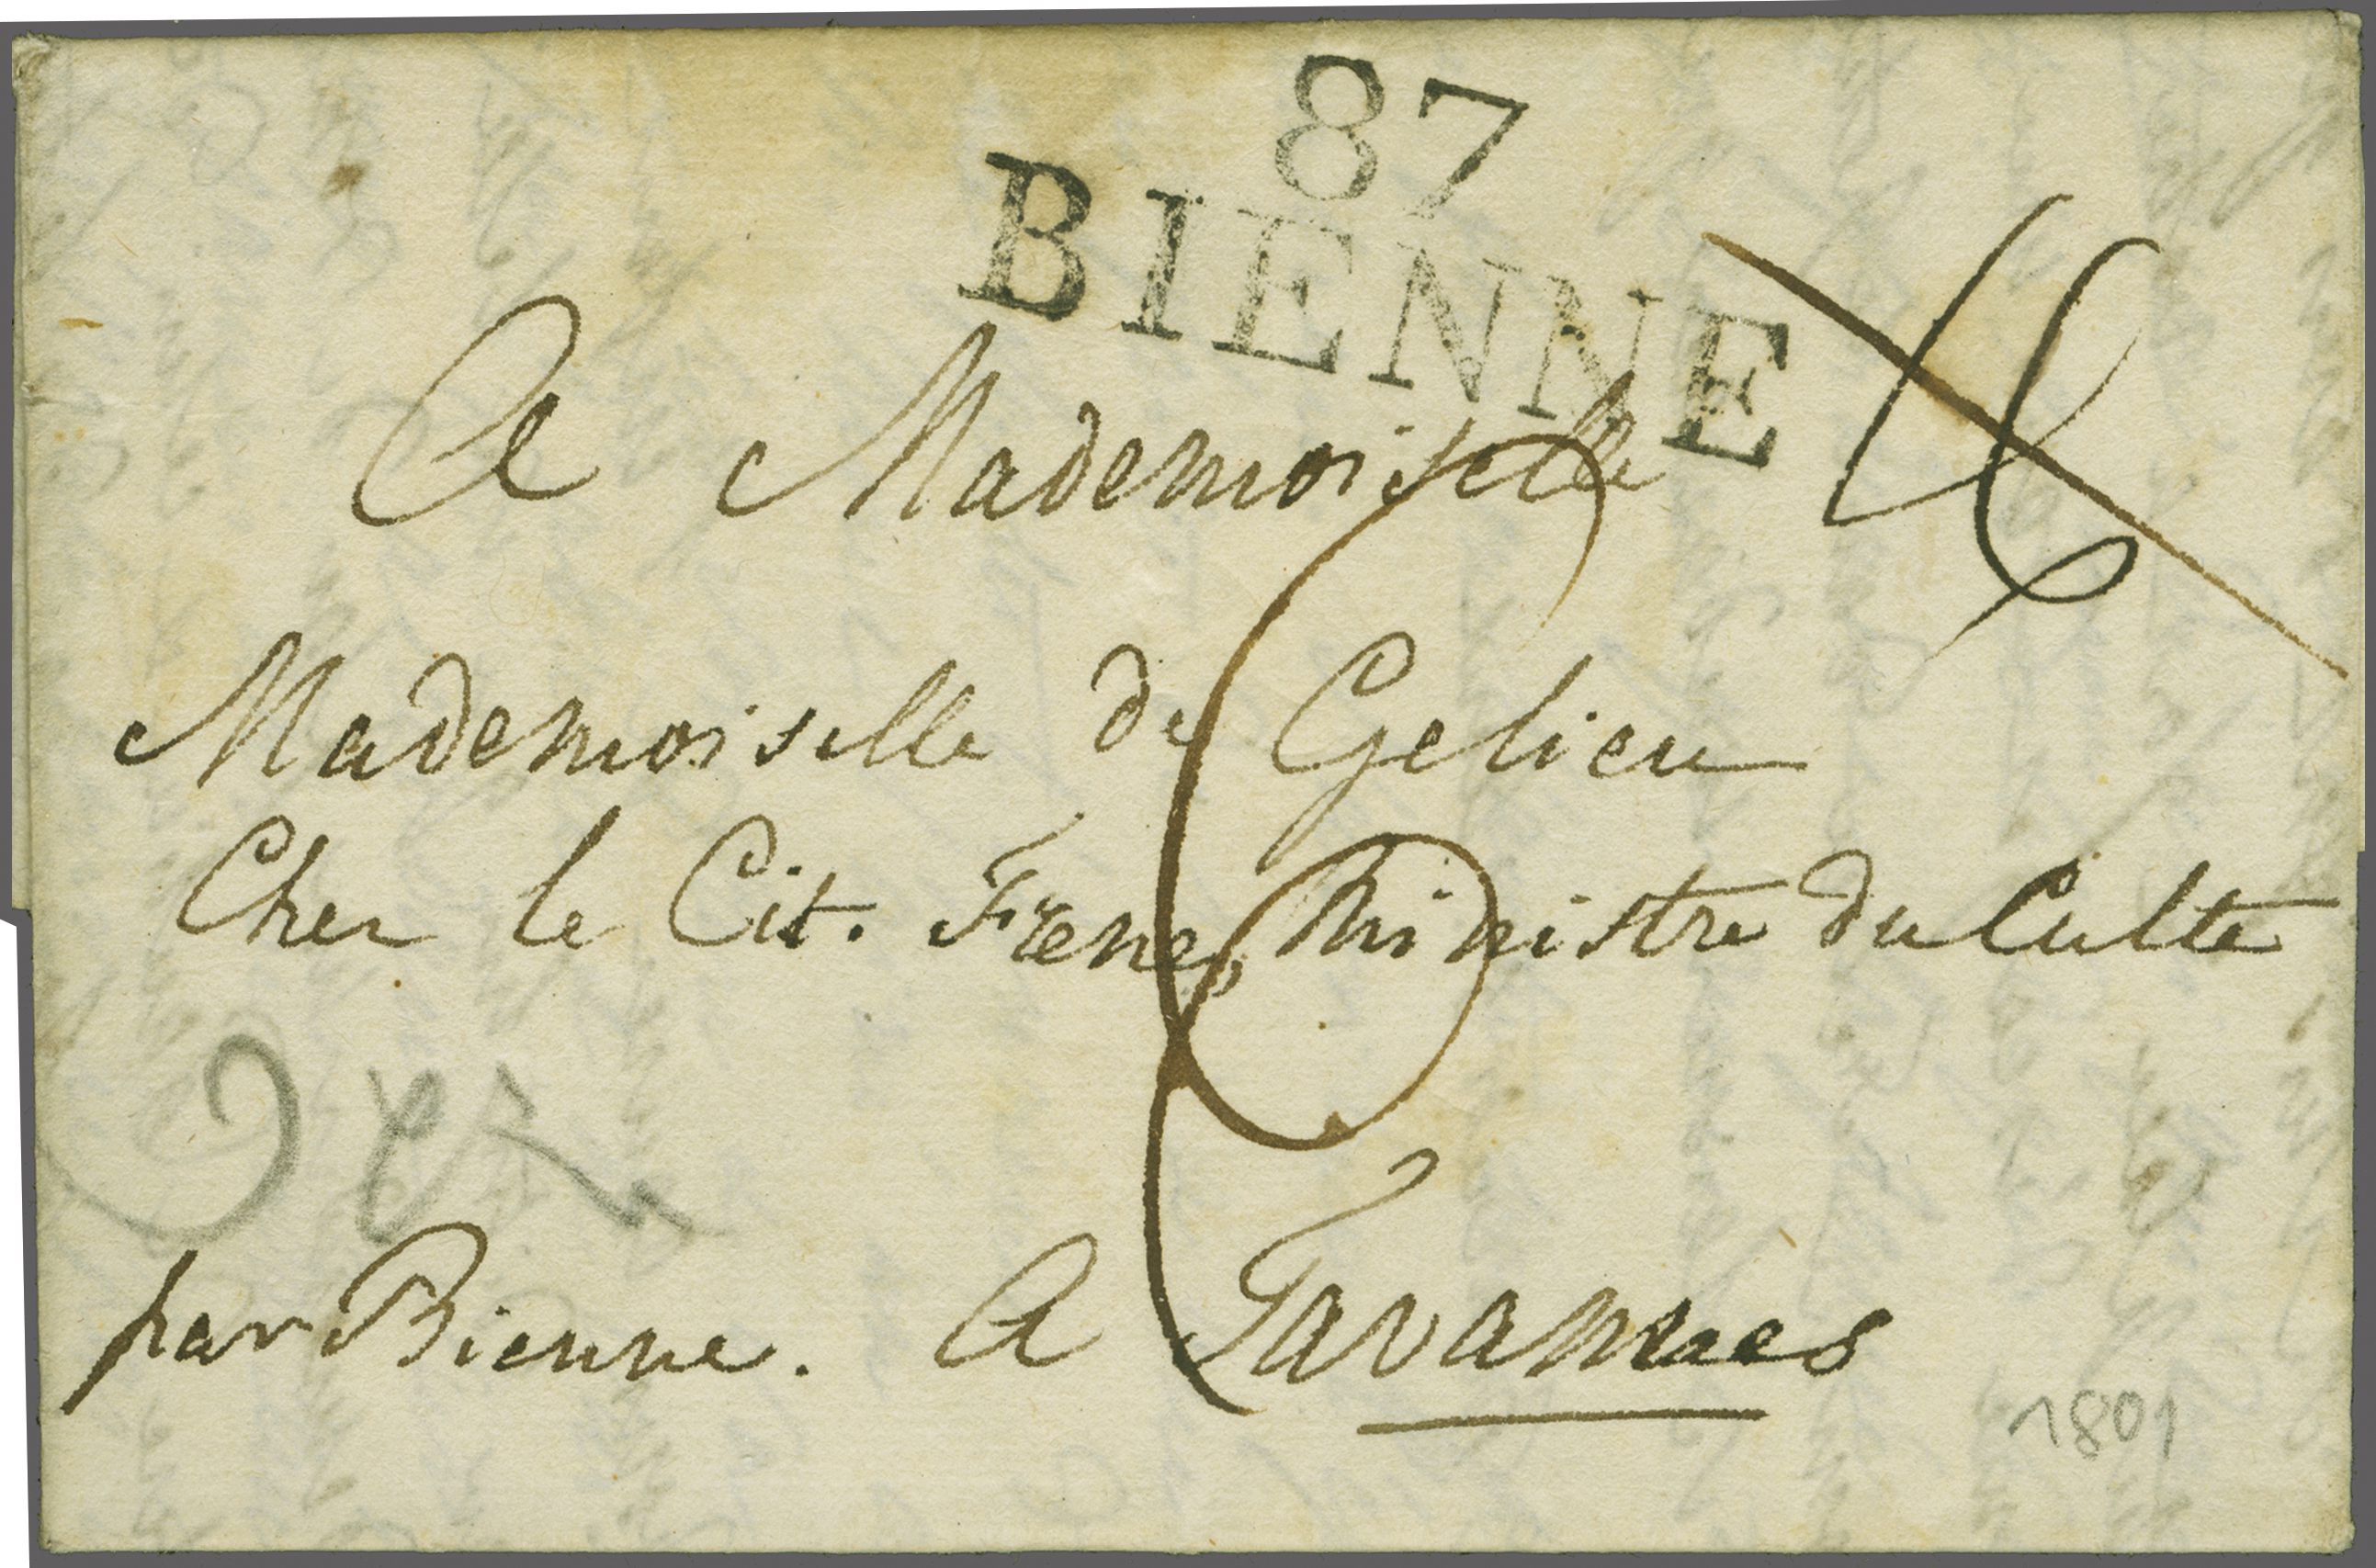 87
BIENNE
A Mademoiselle
Mademoiselle de Gelieu
Chez le Cit. Frêne, Ministre du Culte
par Bienne. A Tavannes
1801